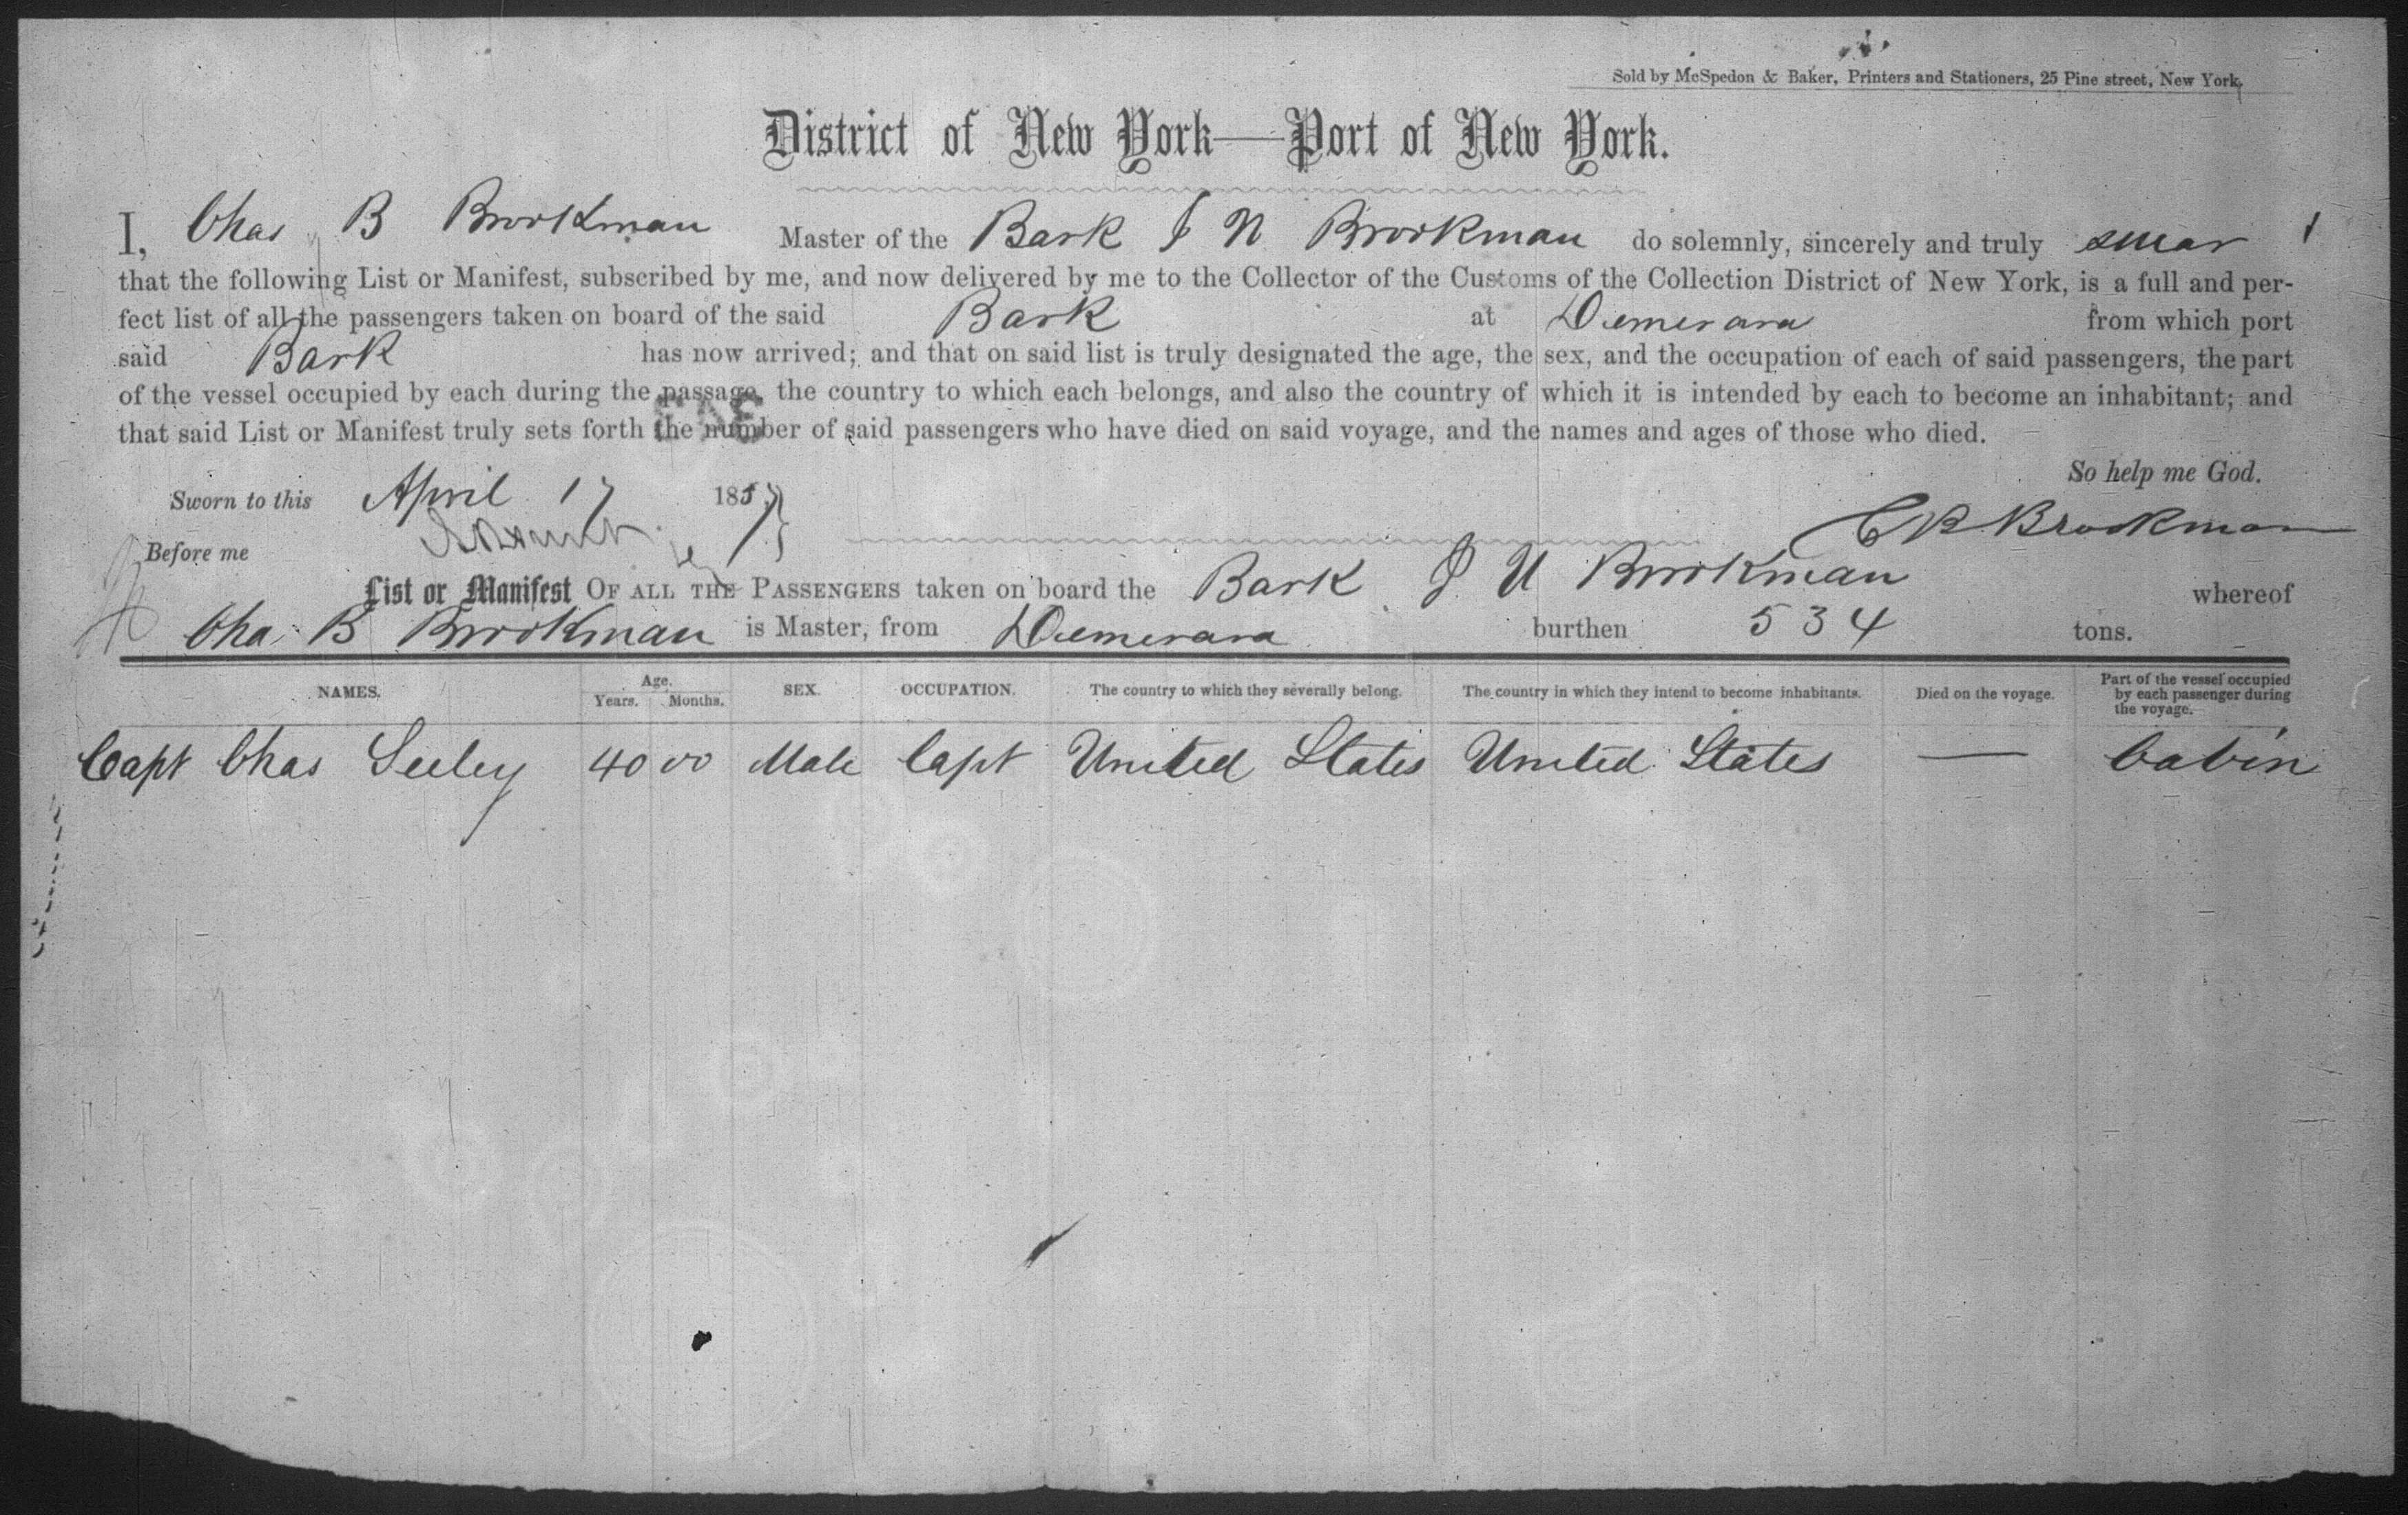 Sold by McSpedon & Baker, Printers and Stationers, 25 Pine street, New York.
District of New York—Port of New York.
I, Chas B Brookman Master of the Bark J N Brookman do solemnly, sincerely and truly swear
that the following List or Manifest, subscribed by me, and now delivered by me to the Collector of the Customs of the Collection District of New York, is a full and per-
fect list of all the passengers taken on board of the said Bark at Demerara from which port
said Bark has now arrived; and that on said list is truly designated the age, the sex, and the occupation of each of said passengers, the part
of the vessel occupied by each during the passage, the country to which each belongs, and also the country of which it is intended by each to become an inhabitant; and
that said List or Manifest truly sets forth the number of said passengers who have died on said voyage, and the names and ages of those who died.
So help me God.
Sworn to this April 17 1857
C B Brookman
Before me
List or Manifest OF ALL THE PASSENGERS taken on board the Bark J N Brookman whereof
Cha B Brookman is Master, from Demerara burthen 534 tons.
NAMES. Age. Years. Months. SEX. OCCUPATION. The country to which they severally belong. The country in which they intend to become inhabitants. Died on the voyage. Part of the vessel occupied by each passenger during the voyage.
Capt Chas Seeley 40 00 Male Capt United States United States — Cabin